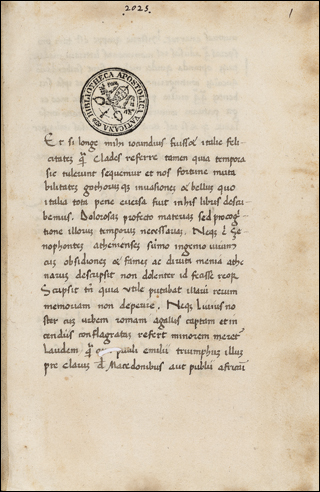 2025
1
BIBLIOTHECA APOSTOLICA VATICANA
Et si longe mihi iocundius fuisset italie feli-
citates q̄ clades referre tamen quia tempora
sic tulerunt sequemur et nos fortune muta
bilitates gothorumq3 inuasiones et bellum quo
italia tota pene euersa fuit in his libris descri
bemus. Dolorosas profecto materias sed pro cog̅i
tione illorum temporum necessarias. Neq3 .n. Xe
nophontes atheniensis summo ingenio uir cum
obsidiones et famem ac diruta menia athe
narum descripsit non dolenter id fecisse reor
Scripsit tn̄ quia utile putabat illarum rerum
memoriam non deperire. Neq3 Liuius no
ster cum urbem romam a gallis captam et in
cendiis conflagratam refert minorem meret̄
laudem q̄ cum pauli emilii triumphum illum
preclarum de Macedonibus aut publii africani